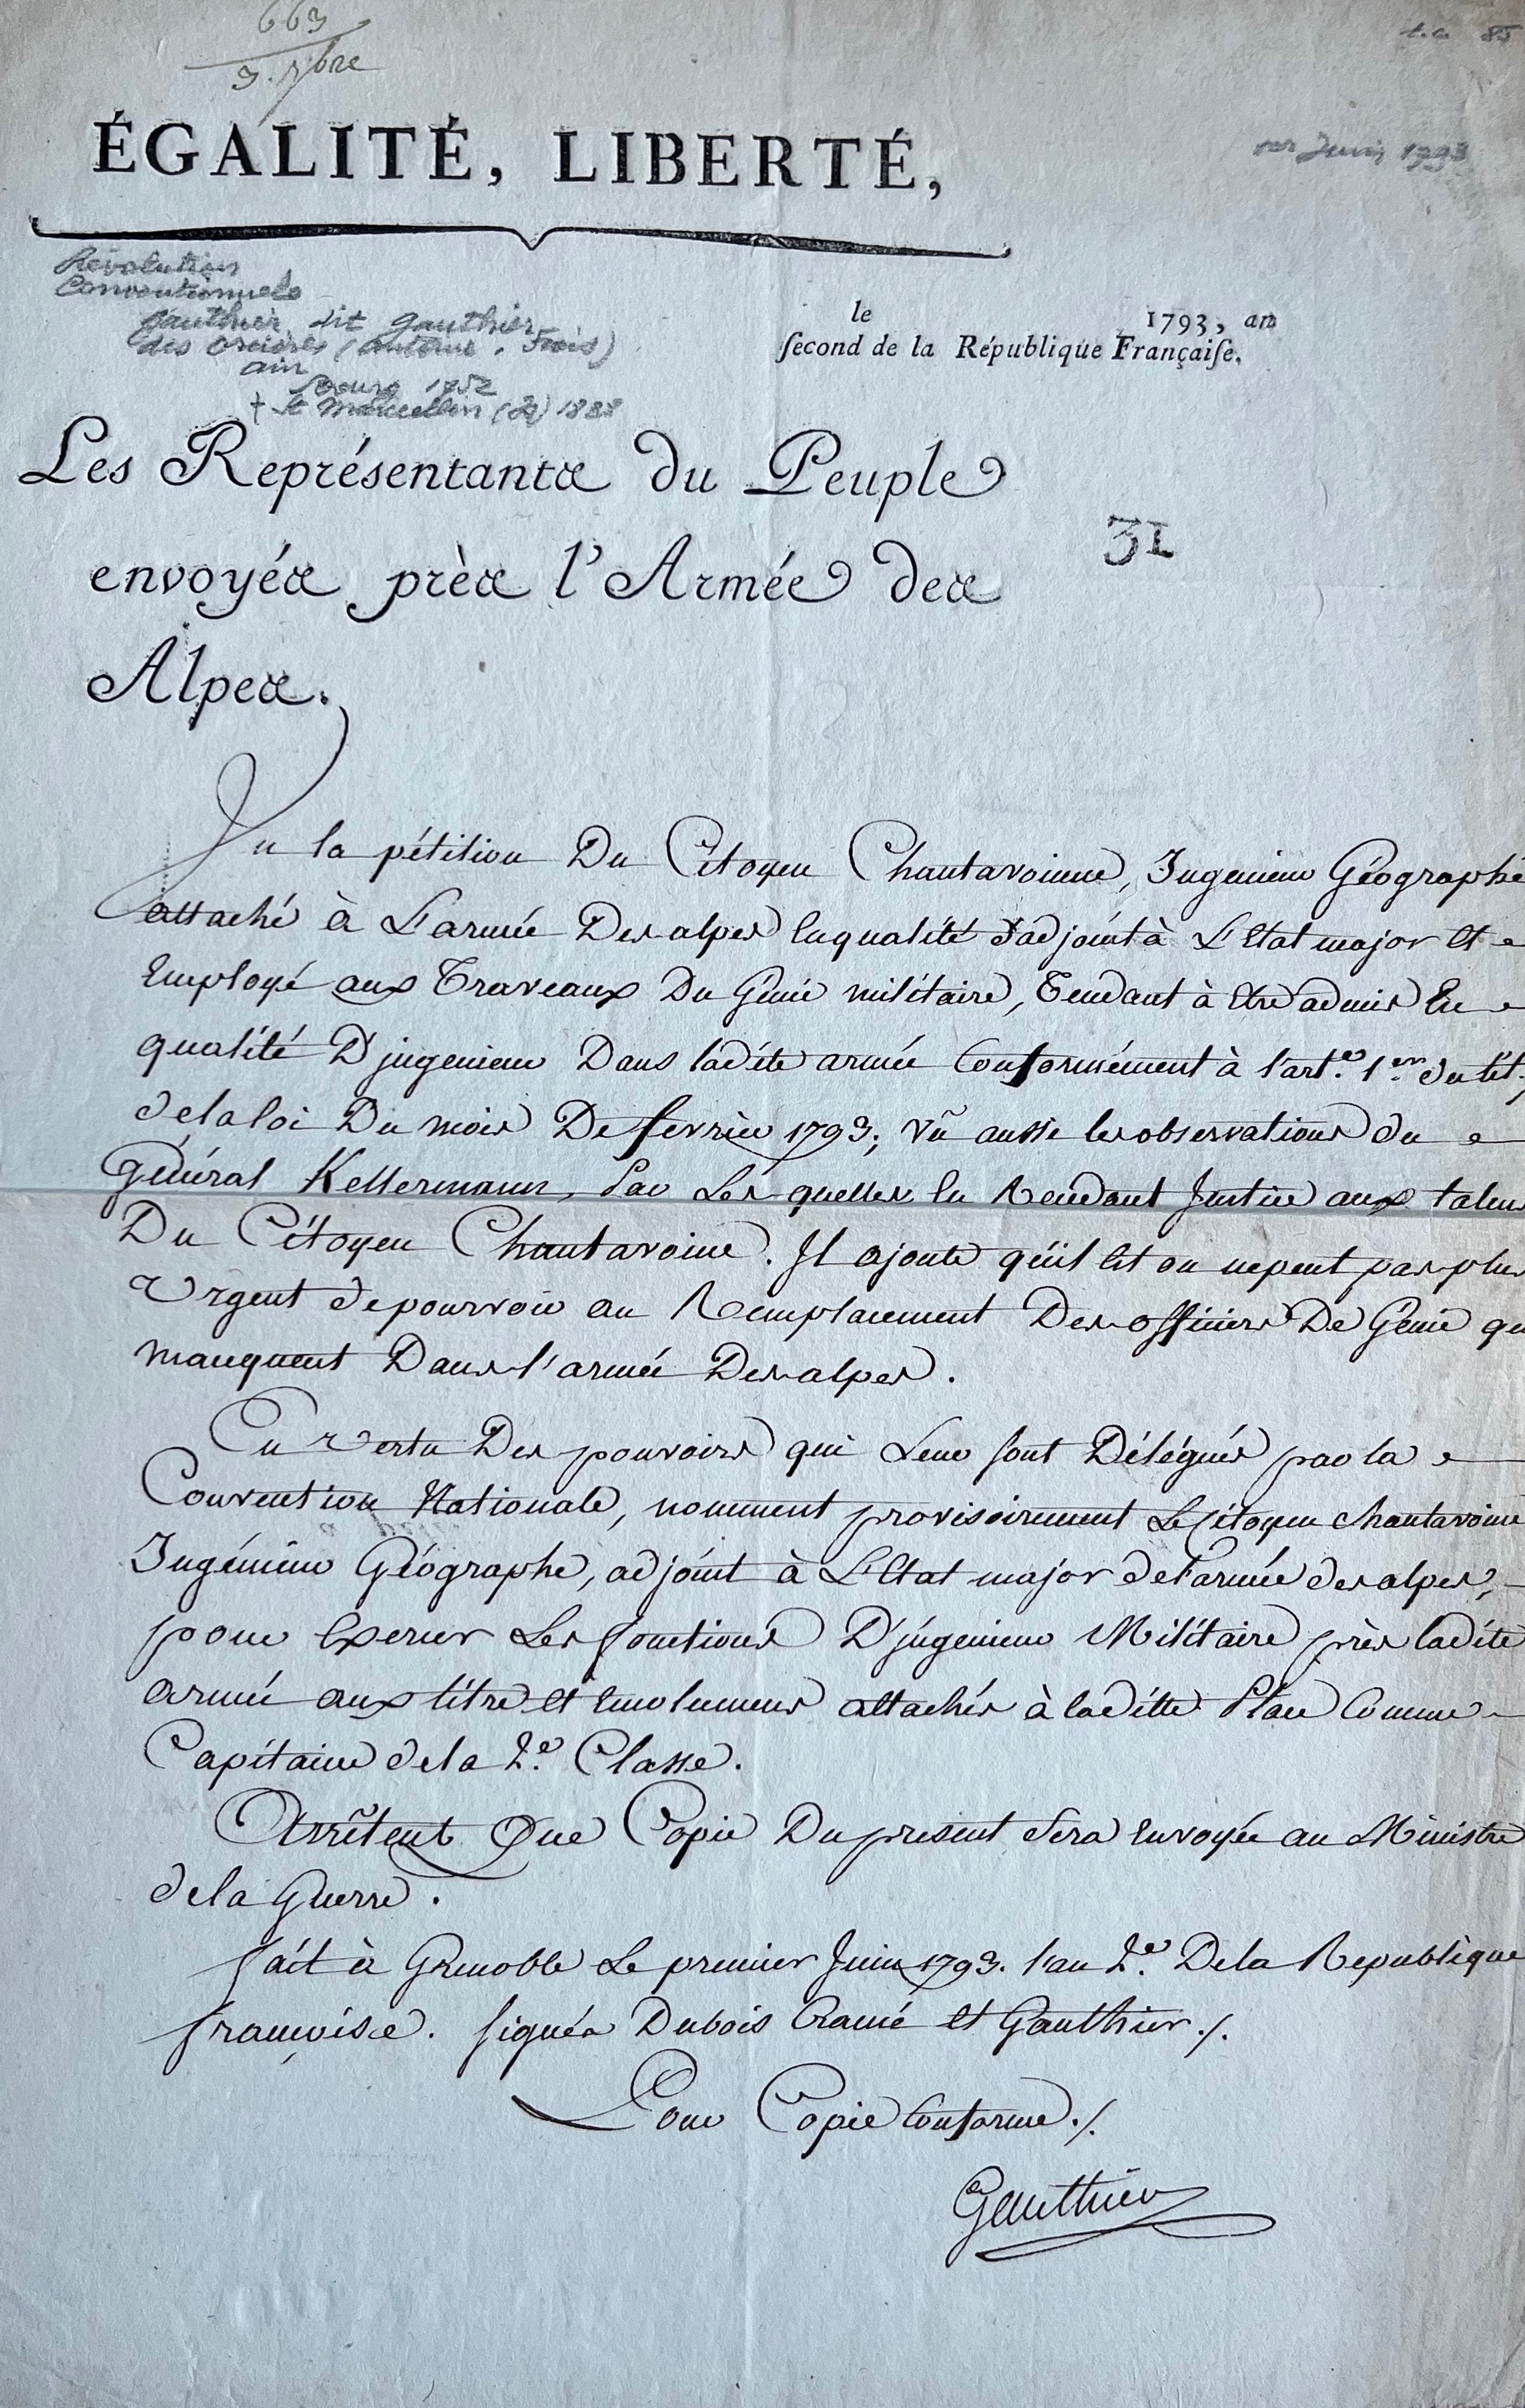 663
9. 7bre
t.c. 85
1er Juin 1793
ÉGALITÉ, LIBERTÉ,
Révolution
Conventionnels
Gauthier dit Gauthier
des orcières (antoine, Frois)
ain
Bourg 1752
+ St Marcellin 1838
le 1793, an
ſecond de la République Françaiſe.
Les Représentants du Peuple
envoyés près l'Armée des
Alpes.
31
Vu la pétition Du Citoyen Chantavoinne, Ingenieur Géographe
attaché à L'armée Des alpes En qualité d'adjoint à L'Etat major Et
Employé aux Travaux Du Génie militaire, Tendant à Etre admis En
qualité D'ingenieur Dans ladite armée Conformément à l'art.e 1.er du tit.
de la loi Du mois De fevrier 1793; Vû aussi les observations du
Général Kellermann, Par Les quelles En Rendant Justice aux talens
Du Citoyen Chantavoine. Il ajoute qu'il Est on ne peut pas plus
Urgent de pourvoir au Remplacement Des officiers De Génie qui
manquent Dans l'armée Des alpes.
En Vertu Des pouvoirs qui Leur sont Délégués par la
Convention Nationale, nomment provisoirement Le Citoyen Chantavoine
Ingénieur Géographe, adjoint à L'Etat major de l'armée des alpes,
pour Exercer Les fonctions D'ingenieur Militaire près ladite
armée aux titre et Emolumens attachés à la ditte Place Comme
Capitaine de la 2.e Classe.
Arrêtent Que Copie Du présent Sera Envoyée au Ministre
de la Guerre.
fait à Grenoble Le premier Juin 1793. l'an 2.e De la Republique
françoise. signés Dubois Crancé et Gauthier ./.
Pour Copie Conforme ./.
Gauthier